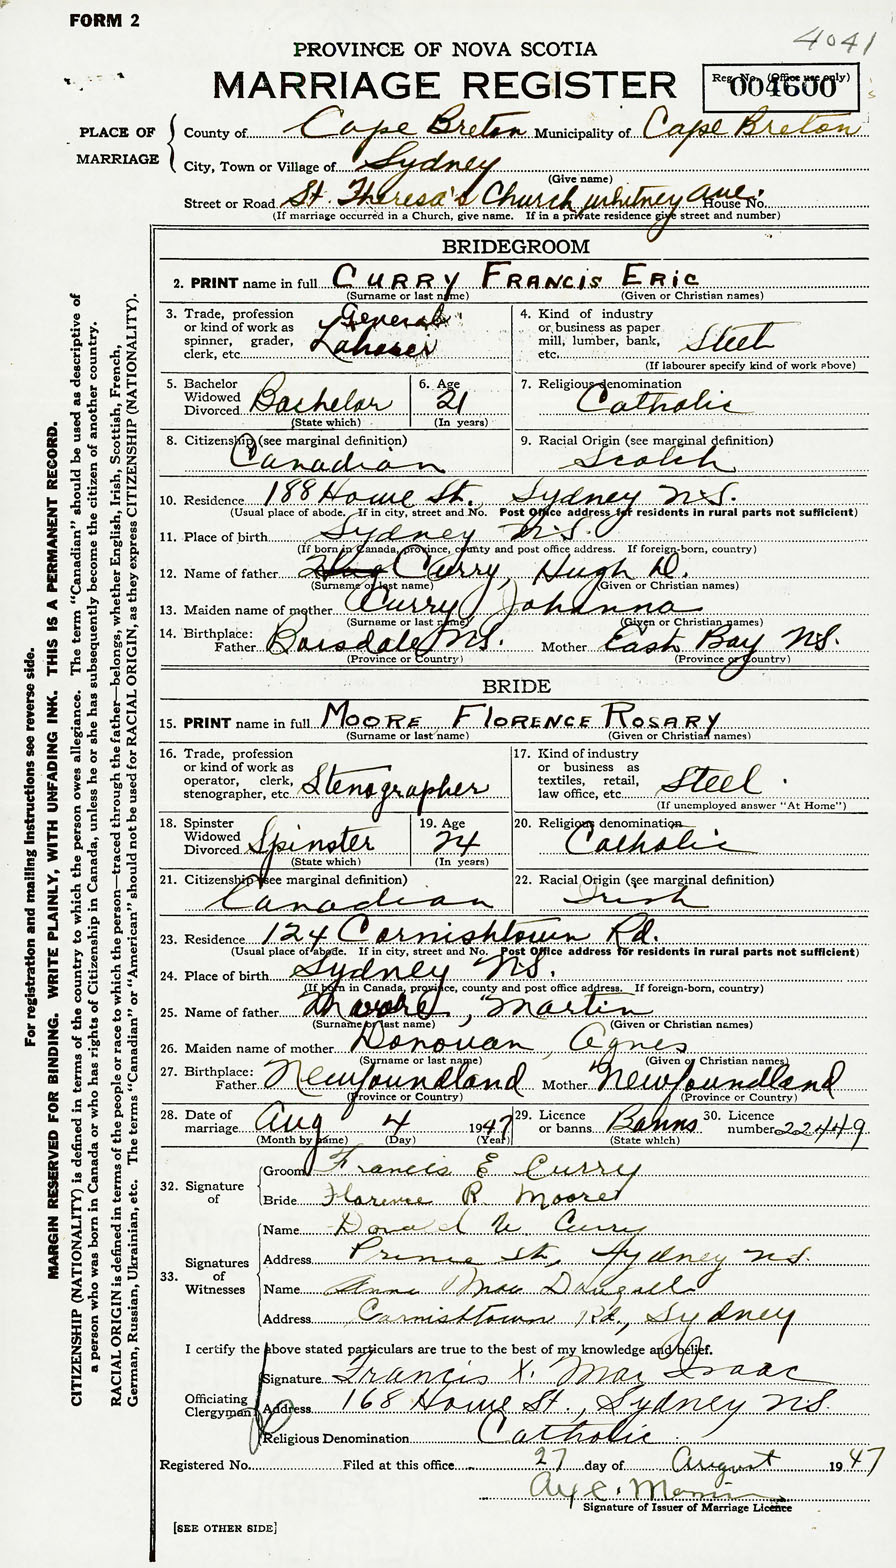 FORM 2
4041
PROVINCE OF NOVA SCOTIA
MARRIAGE REGISTER
Reg. No. (Office use only)
004600
PLACE OF MARRIAGE
County of Cape Breton Municipality of Cape Breton
City, Town or Village of Sydney
(Give name)
Street or Road St. Theresa's Church, Whitney Ave. House No.
(If marriage occurred in a Church, give name. If in a private residence give street and number)
BRIDEGROOM
2. PRINT name in full CURRY FRANCIS ERIC
(Surname or last name) (Given or Christian names)
3. Trade, profession or kind of work as spinner, grader, clerk, etc. General Laborer
4. Kind of industry or business as paper mill, lumber, bank, etc. Steel
(If labourer specify kind of work above)
5. Bachelor Widowed Divorced Bachelor
(State which)
6. Age 21
(In years)
7. Religious denomination Catholic
8. Citizenship (see marginal definition) Canadian
9. Racial Origin (see marginal definition) Scotch
10. Residence 188 Howe St., Sydney N.S.
(Usual place of abode. If in city, street and No. Post Office address for residents in rural parts not sufficient)
11. Place of birth Sydney N.S.
(If born in Canada, province, county and post office address. If foreign-born, country)
12. Name of father Curry, Hugh D.
(Surname or last name) (Given or Christian names)
13. Maiden name of mother Curry Johanna
(Surname or last name) (Given or Christian names)
14. Birthplace: Father Boisdale N.S. Mother East Bay N.S.
(Province or Country) (Province or Country)
BRIDE
15. PRINT name in full MOORE FLORENCE ROSARY
(Surname or last name) (Given or Christian names)
16. Trade, profession or kind of work as operator, clerk, stenographer, etc. Stenographer
17. Kind of industry or business as textiles, retail, law office, etc. Steel
(If unemployed answer "At Home")
18. Spinster Widowed Divorced Spinster
(State which)
19. Age 24
(In years)
20. Religious denomination Catholic
21. Citizenship (see marginal definition) Canadian
22. Racial Origin (see marginal definition) Irish
23. Residence 124 Cornishtown Rd.
(Usual place of abode. If in city, street and No. Post Office address for residents in rural parts not sufficient)
24. Place of birth Sydney N.S.
(If born in Canada, province, county and post office address. If foreign-born, country)
25. Name of father Moore, Martin
(Surname or last name) (Given or Christian names)
26. Maiden name of mother Donovan, Agnes
(Surname or last name) (Given or Christian names)
27. Birthplace: Father Newfoundland Mother Newfoundland
(Province or Country) (Province or Country)
28. Date of marriage Aug 4 1947
(Month by name) (Day) (Year)
29. Licence or banns Banns
(State which)
30. Licence number 22449
32. Signature of
Groom Francis E Curry
Bride Florence R. Moore
33. Signatures of Witnesses
Name Donald Curry
Address Prince St., Sydney N.S.
Name Anna Mac Dougall
Address Cornishtown Rd., Sydney
I certify the above stated particulars are true to the best of my knowledge and belief.
Officiating Clergyman
Signature Francis X. Mac Isaac
Address 168 Howe St., Sydney N.S.
Religious Denomination Catholic
Registered No. Filed at this office 27 day of August 1947
Signature of Issuer of Marriage Licence
[SEE OTHER SIDE]
For registration and mailing instructions see reverse side.
MARGIN RESERVED FOR BINDING. WRITE PLAINLY, WITH UNFADING INK. THIS IS A PERMANENT RECORD.
CITIZENSHIP (NATIONALITY) is defined in terms of the country to which the person owes allegiance. The term "Canadian" should be used as descriptive of
a person who was born in Canada or who has rights of Citizenship in Canada, unless he or she has subsequently become the citizen of another country.
RACIAL ORIGIN is defined in terms of the people or race to which the person—traced through the father—belongs, whether English, Irish, Scottish, French,
German, Russian, Ukrainian, etc. The terms "Canadian" or "American" should not be used for RACIAL ORIGIN, as they express CITIZENSHIP (NATIONALITY).